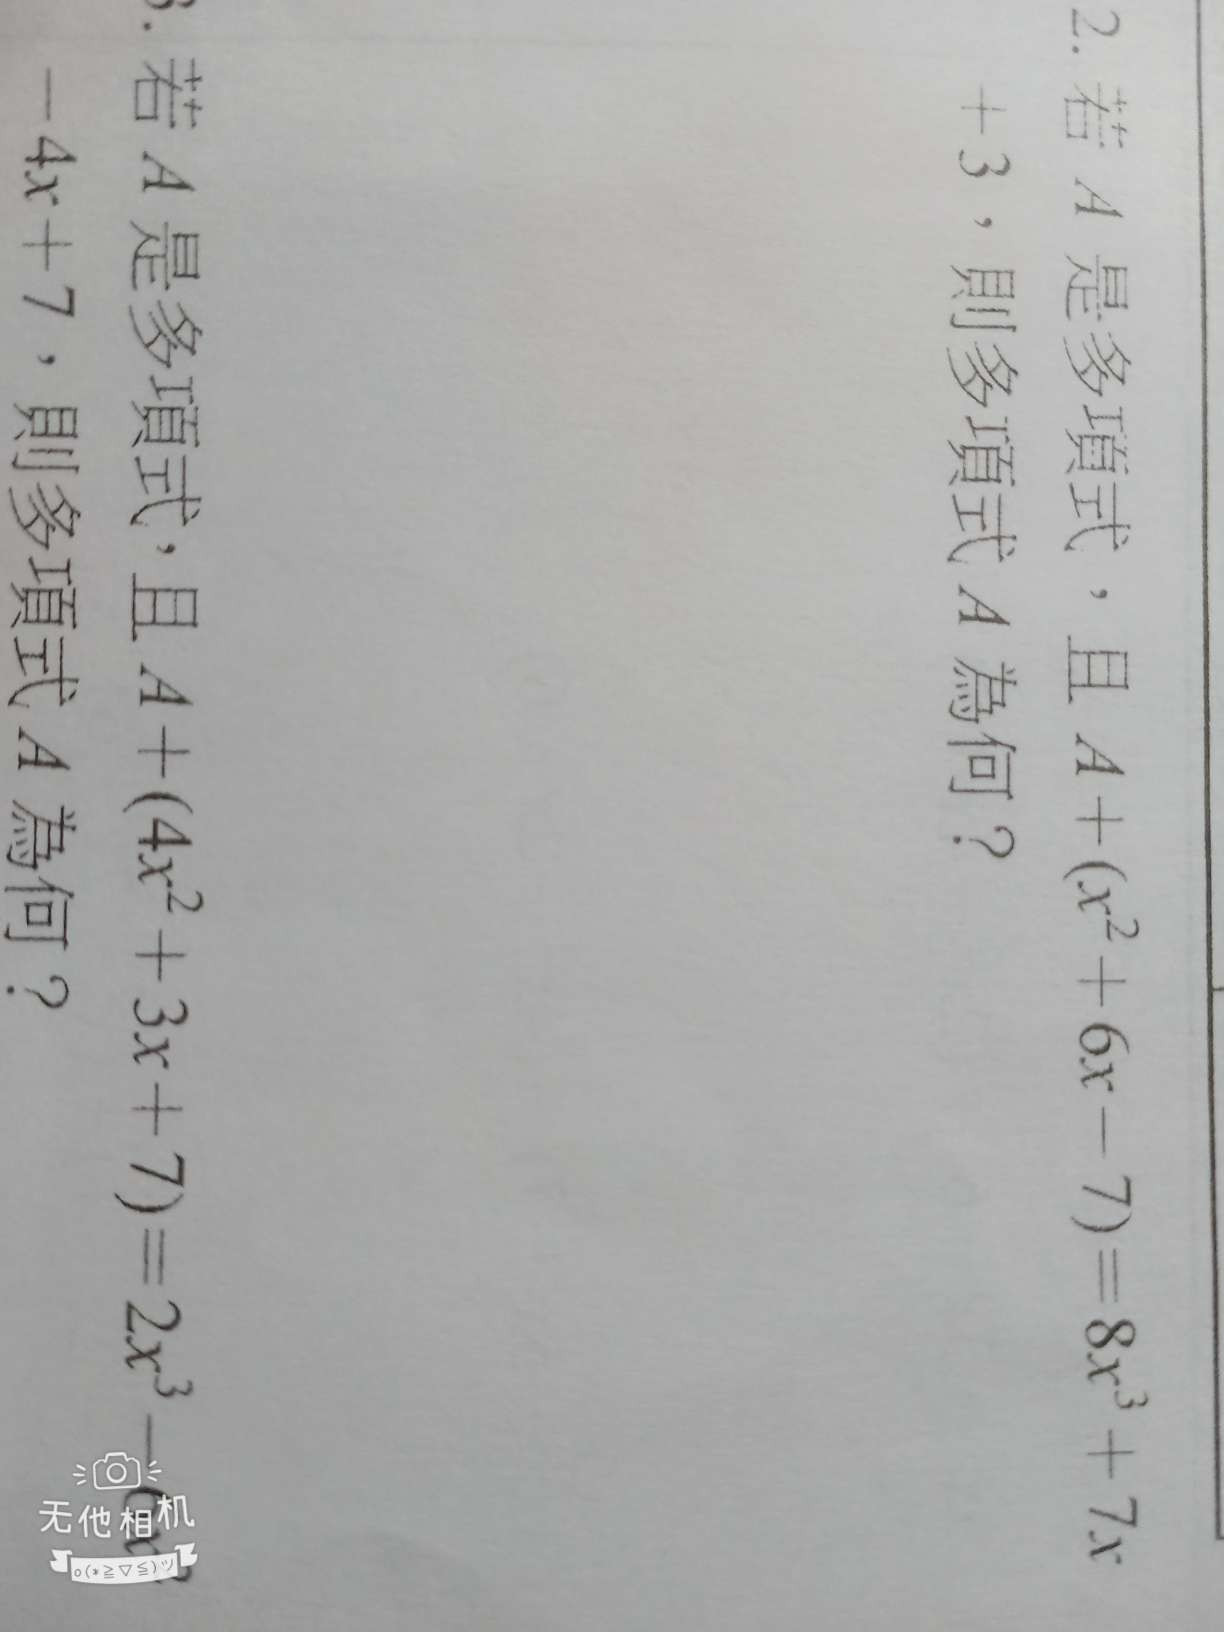 2. 若 A 是多項式，且 A＋(x²＋6x－7)＝8x³＋7x
＋3，則多項式 A 為何？
3. 若 A 是多項式，且 A＋(4x²＋3x＋7)＝2x³－6x²
－4x＋7，則多項式 A 為何？
无他相机